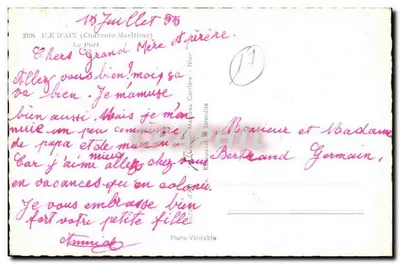 15 Juillet 55
2104 ILE D'AIX (Charente-Maritime)
Le Port
Chers Grand Mère et père
Allez vous bien? moi sa
va bien. Je m'amuse
bien aussi. Mais je m'en
nuie un peu
de papa et de maman
Car j'aime mieux aller chez vous
en vacances qu'en colonie.
Je vous embrasse bien
fort votre petite fille
Annick
17
Monsieur et Madame
Bertrand Germain,
Reproduction interdite
Photo Véritable